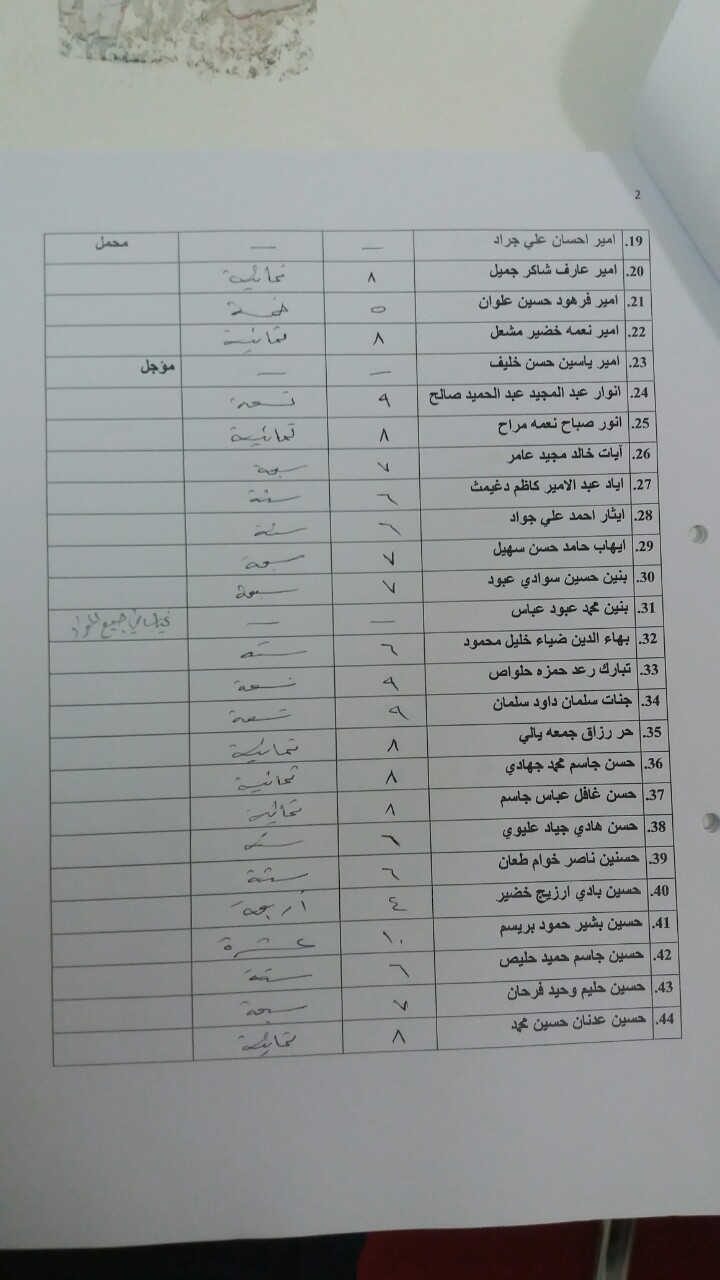 2
19. امير احسان علي جراد — — محمل
20. امير عارف شاكر جميل ٨ ثمانية
21. امير فرهود حسين علوان ٥ خمسة
22. امير نعمه خضير مشعل ٨ ثمانية
23. امير ياسين حسن خليف — — مؤجل
24. انوار عبد المجيد عبد الحميد صالح ٩ تسعة
25. انور صباح نعمه مراح ٨ ثمانية
26. آيات خالد مجيد عامر ٧ سبعة
27. اياد عبد الامير كاظم دغيمث ٦ ستة
28. ايثار احمد علي جواد ٦ ستة
29. ايهاب حامد حسن سهيل ٧ سبعة
30. بنين حسين سوادي عبود ٧ سبعة
31. بنين محمد عبود عباس — — في جميع المواد
32. بهاء الدين ضياء خليل محمود ٦ ستة
33. تبارك رعد حمزه حلواص ٩ تسعة
34. جنات سلمان داود سلمان ٩ تسعة
35. حر رزاق جمعه يالي ٨ ثمانية
36. حسن جاسم محمد جهادي ٨ ثمانية
37. حسن غافل عباس جاسم ٨ ثمانية
38. حسن هادي جياد عليوي ٦ ستة
39. حسنين ناصر خوام طعان ٦ ستة
40. حسين بادي ارزيج خضير ٤ أربعة
41. حسين بشير حمود بريسم ١٠ عشرة
42. حسين جاسم حميد حليص ٦ ستة
43. حسين حليم وحيد فرحان ٧ سبعة
44. حسين عدنان حسين محمد ٨ ثمانية